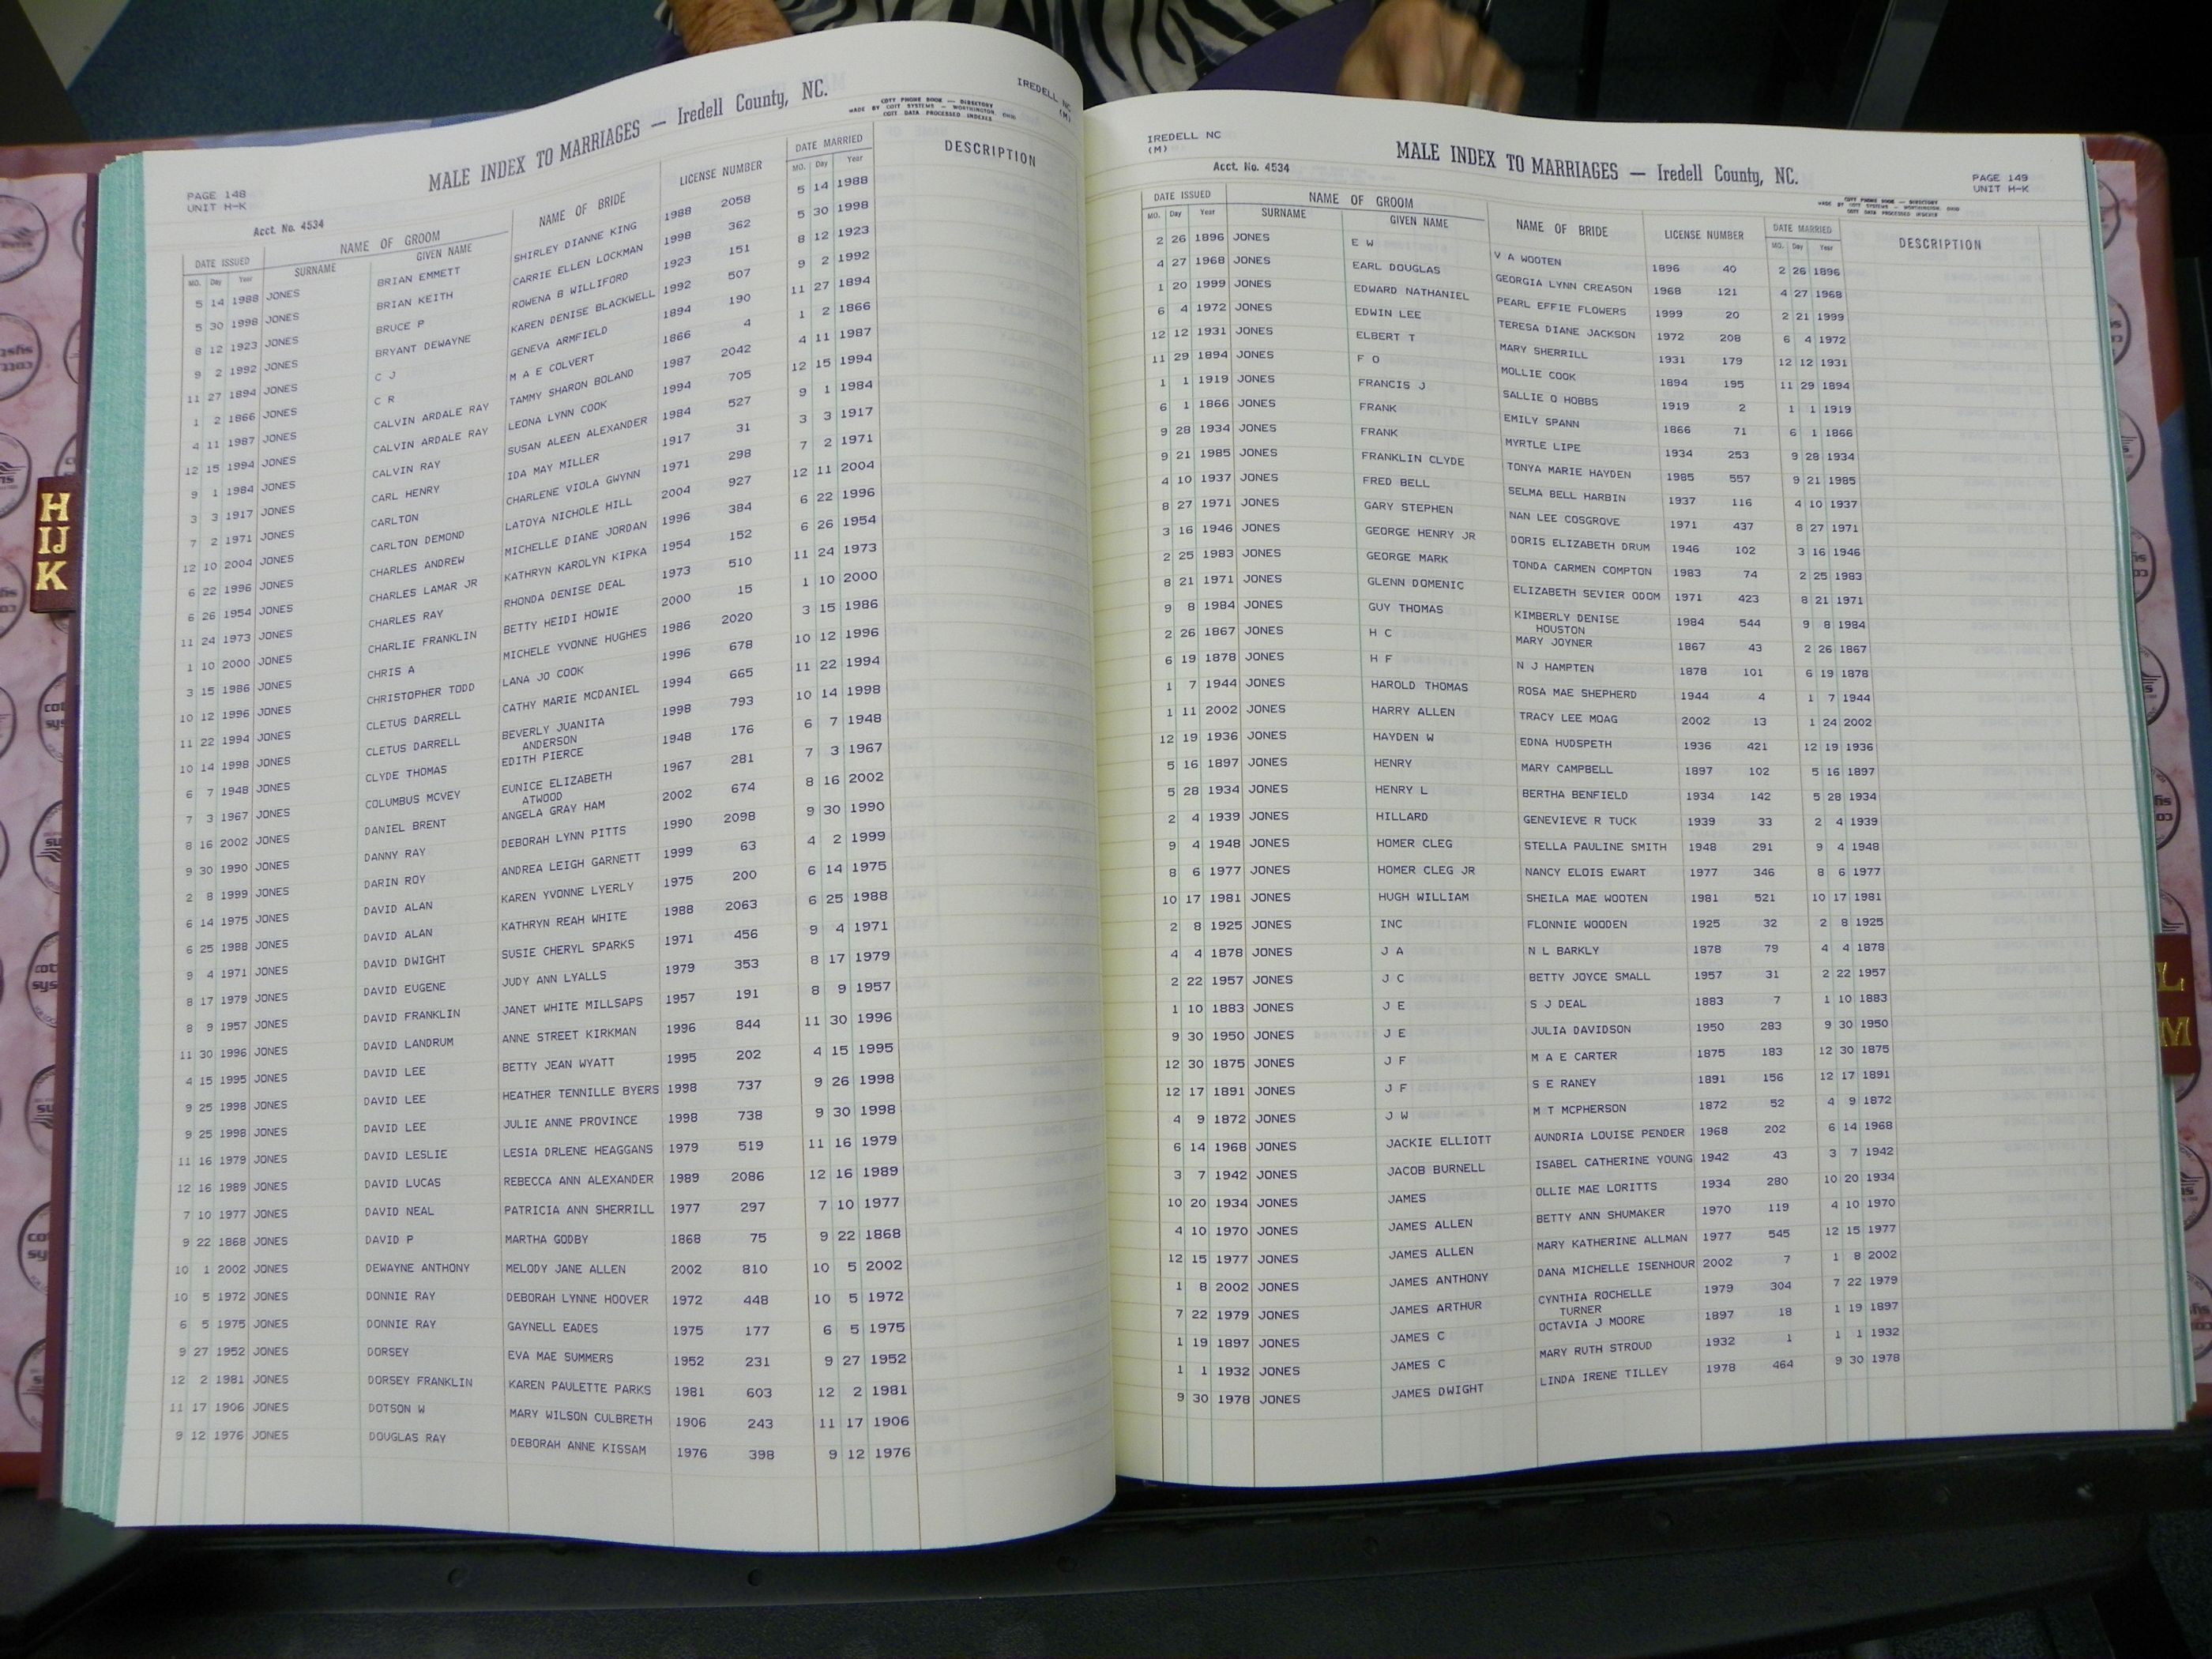 IREDELL NC
(M)
MALE INDEX TO MARRIAGES — Iredell County, NC.
COTT PHONE BOOK — DIRECTORY
MADE BY COTT SYSTEMS — WORTHINGTON, OHIO
COTT DATA PROCESSED INDEXES
PAGE 148
UNIT H-K
Acct. No. 4534
DATE ISSUED NAME OF GROOM NAME OF BRIDE LICENSE NUMBER DATE MARRIED DESCRIPTION
MO. Day Year SURNAME GIVEN NAME MO. Day Year
5 14 1988 JONES BRIAN EMMETT SHIRLEY DIANNE KING 1988 2058 5 14 1988
5 30 1998 JONES BRIAN KEITH CARRIE ELLEN LOCKMAN 1998 362 5 30 1998
8 12 1923 JONES BRUCE P ROWENA B WILLIFORD 1923 151 8 12 1923
9 2 1992 JONES BRYANT DEWAYNE KAREN DENISE BLACKWELL 1992 507 9 2 1992
11 27 1894 JONES C J GENEVA ARMFIELD 1894 190 11 27 1894
1 2 1866 JONES C R M A E COLVERT 1866 4 1 2 1866
4 11 1987 JONES CALVIN ARDALE RAY TAMMY SHARON BOLAND 1987 2042 4 11 1987
12 15 1994 JONES CALVIN ARDALE RAY LEONA LYNN COOK 1994 705 12 15 1994
9 1 1984 JONES CALVIN RAY SUSAN ALEEN ALEXANDER 1984 527 9 1 1984
3 3 1917 JONES CARL HENRY IDA MAY MILLER 1917 31 3 3 1917
7 2 1971 JONES CARLTON CHARLENE VIOLA GWYNN 1971 298 7 2 1971
12 10 2004 JONES CARLTON DEMOND LATOYA NICHOLE HILL 2004 927 12 11 2004
6 22 1996 JONES CHARLES ANDREW MICHELLE DIANE JORDAN 1996 384 6 22 1996
6 26 1954 JONES CHARLES LAMAR JR KATHRYN KAROLYN KIPKA 1954 152 6 26 1954
11 24 1973 JONES CHARLES RAY RHONDA DENISE DEAL 1973 510 11 24 1973
1 10 2000 JONES CHARLIE FRANKLIN BETTY HEIDI HOWIE 2000 15 1 10 2000
3 15 1986 JONES CHRIS A MICHELE YVONNE HUGHES 1986 2020 3 15 1986
10 12 1996 JONES CHRISTOPHER TODD LANA JO COOK 1996 678 10 12 1996
11 22 1994 JONES CLETUS DARRELL CATHY MARIE MCDANIEL 1994 665 11 22 1994
10 14 1998 JONES CLETUS DARRELL BEVERLY JUANITA 1998 793 10 14 1998
ANDERSON
6 7 1948 JONES CLYDE THOMAS EDITH PIERCE 1948 176 6 7 1948
7 3 1967 JONES COLUMBUS MCVEY EUNICE ELIZABETH 1967 281 7 3 1967
ATWOOD
8 16 2002 JONES DANIEL BRENT ANGELA GRAY HAM 2002 674 8 16 2002
9 30 1990 JONES DANNY RAY DEBORAH LYNN PITTS 1990 2098 9 30 1990
2 8 1999 JONES DARIN ROY ANDREA LEIGH GARNETT 1999 63 4 2 1999
6 14 1975 JONES DAVID ALAN KAREN YVONNE LYERLY 1975 200 6 14 1975
6 25 1988 JONES DAVID ALAN KATHRYN REAH WHITE 1988 2063 6 25 1988
9 4 1971 JONES DAVID DWIGHT SUSIE CHERYL SPARKS 1971 456 9 4 1971
8 17 1979 JONES DAVID EUGENE JUDY ANN LYALLS 1979 353 8 17 1979
8 9 1957 JONES DAVID FRANKLIN JANET WHITE MILLSAPS 1957 191 8 9 1957
11 30 1996 JONES DAVID LANDRUM ANNE STREET KIRKMAN 1996 844 11 30 1996
4 15 1995 JONES DAVID LEE BETTY JEAN WYATT 1995 202 4 15 1995
9 25 1998 JONES DAVID LEE HEATHER TENNILLE BYERS 1998 737 9 26 1998
9 25 1998 JONES DAVID LEE JULIE ANNE PROVINCE 1998 738 9 30 1998
11 16 1979 JONES DAVID LESLIE LESIA DRLENE HEAGGANS 1979 519 11 16 1979
12 16 1989 JONES DAVID LUCAS REBECCA ANN ALEXANDER 1989 2086 12 16 1989
7 10 1977 JONES DAVID NEAL PATRICIA ANN SHERRILL 1977 297 7 10 1977
9 22 1868 JONES DAVID P MARTHA GODBY 1868 75 9 22 1868
10 1 2002 JONES DEWAYNE ANTHONY MELODY JANE ALLEN 2002 810 10 5 2002
10 5 1972 JONES DONNIE RAY DEBORAH LYNNE HOOVER 1972 448 10 5 1972
6 5 1975 JONES DONNIE RAY GAYNELL EADES 1975 177 6 5 1975
9 27 1952 JONES DORSEY EVA MAE SUMMERS 1952 231 9 27 1952
12 2 1981 JONES DORSEY FRANKLIN KAREN PAULETTE PARKS 1981 603 12 2 1981
11 17 1906 JONES DOTSON W MARY WILSON CULBRETH 1906 243 11 17 1906
9 12 1976 JONES DOUGLAS RAY DEBORAH ANNE KISSAM 1976 398 9 12 1976
IREDELL NC
(M)
MALE INDEX TO MARRIAGES — Iredell County, NC.
Acct. No. 4534
PAGE 149
UNIT H-K
COTT PHONE BOOK — DIRECTORY
MADE BY COTT SYSTEMS — WORTHINGTON, OHIO
COTT DATA PROCESSED INDEXES
DATE ISSUED NAME OF GROOM NAME OF BRIDE LICENSE NUMBER DATE MARRIED DESCRIPTION
MO. Day Year SURNAME GIVEN NAME MO. Day Year
2 26 1896 JONES E W V A WOOTEN 1896 40 2 26 1896
4 27 1968 JONES EARL DOUGLAS GEORGIA LYNN CREASON 1968 121 4 27 1968
1 20 1999 JONES EDWARD NATHANIEL PEARL EFFIE FLOWERS 1999 20 2 21 1999
6 4 1972 JONES EDWIN LEE TERESA DIANE JACKSON 1972 208 6 4 1972
12 12 1931 JONES ELBERT T MARY SHERRILL 1931 179 12 12 1931
11 29 1894 JONES F O MOLLIE COOK 1894 195 11 29 1894
1 1 1919 JONES FRANCIS J SALLIE O HOBBS 1919 2 1 1 1919
6 1 1866 JONES FRANK EMILY SPANN 1866 71 6 1 1866
9 28 1934 JONES FRANK MYRTLE LIPE 1934 253 9 28 1934
9 21 1985 JONES FRANKLIN CLYDE TONYA MARIE HAYDEN 1985 557 9 21 1985
4 10 1937 JONES FRED BELL SELMA BELL HARBIN 1937 116 4 10 1937
8 27 1971 JONES GARY STEPHEN NAN LEE COSGROVE 1971 437 8 27 1971
3 16 1946 JONES GEORGE HENRY JR DORIS ELIZABETH DRUM 1946 102 3 16 1946
2 25 1983 JONES GEORGE MARK TONDA CARMEN COMPTON 1983 74 2 25 1983
8 21 1971 JONES GLENN DOMENIC ELIZABETH SEVIER ODOM 1971 423 8 21 1971
9 8 1984 JONES GUY THOMAS KIMBERLY DENISE 1984 544 9 8 1984
HOUSTON
2 26 1867 JONES H C MARY JOYNER 1867 43 2 26 1867
6 19 1878 JONES H F N J HAMPTEN 1878 101 6 19 1878
1 7 1944 JONES HAROLD THOMAS ROSA MAE SHEPHERD 1944 4 1 7 1944
1 11 2002 JONES HARRY ALLEN TRACY LEE MOAG 2002 13 1 24 2002
12 19 1936 JONES HAYDEN W EDNA HUDSPETH 1936 421 12 19 1936
5 16 1897 JONES HENRY MARY CAMPBELL 1897 102 5 16 1897
5 28 1934 JONES HENRY L BERTHA BENFIELD 1934 142 5 28 1934
2 4 1939 JONES HILLARD GENEVIEVE R TUCK 1939 33 2 4 1939
9 4 1948 JONES HOMER CLEG STELLA PAULINE SMITH 1948 291 9 4 1948
8 6 1977 JONES HOMER CLEG JR NANCY ELOIS EWART 1977 346 8 6 1977
10 17 1981 JONES HUGH WILLIAM SHEILA MAE WOOTEN 1981 521 10 17 1981
2 8 1925 JONES INC FLONNIE WOODEN 1925 32 2 8 1925
4 4 1878 JONES J A N L BARKLY 1878 79 4 4 1878
2 22 1957 JONES J C BETTY JOYCE SMALL 1957 31 2 22 1957
1 10 1883 JONES J E S J DEAL 1883 7 1 10 1883
9 30 1950 JONES J E JULIA DAVIDSON 1950 283 9 30 1950
12 30 1875 JONES J F M A E CARTER 1875 183 12 30 1875
12 17 1891 JONES J F S E RANEY 1891 156 12 17 1891
4 9 1872 JONES J W M T MCPHERSON 1872 52 4 9 1872
6 14 1968 JONES JACKIE ELLIOTT AUNDRIA LOUISE PENDER 1968 202 6 14 1968
3 7 1942 JONES JACOB BURNELL ISABEL CATHERINE YOUNG 1942 43 3 7 1942
10 20 1934 JONES JAMES OLLIE MAE LORITTS 1934 280 10 20 1934
4 10 1970 JONES JAMES ALLEN BETTY ANN SHUMAKER 1970 119 4 10 1970
12 15 1977 JONES JAMES ALLEN MARY KATHERINE ALLMAN 1977 545 12 15 1977
1 8 2002 JONES JAMES ANTHONY DANA MICHELLE ISENHOUR 2002 7 1 8 2002
7 22 1979 JONES JAMES ARTHUR CYNTHIA ROCHELLE 1979 304 7 22 1979
TURNER
1 19 1897 JONES JAMES C OCTAVIA J MOORE 1897 18 1 19 1897
1 1 1932 JONES JAMES C MARY RUTH STROUD 1932 1 1 1 1932
9 30 1978 JONES JAMES DWIGHT LINDA IRENE TILLEY 1978 464 9 30 1978
H
IJ
K
L
M